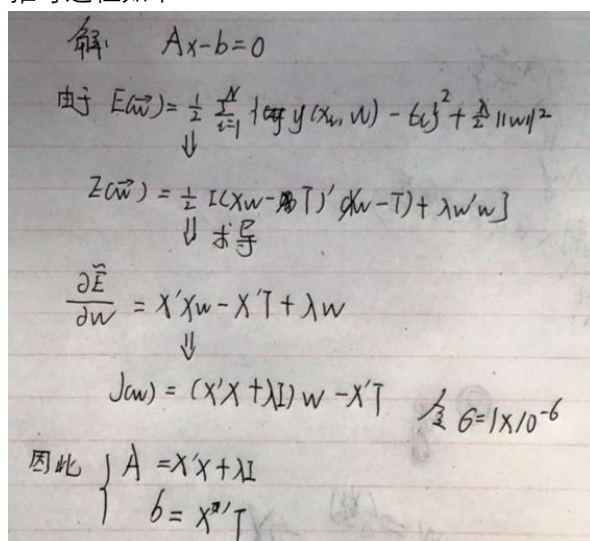 解: Ax-b=0
由于 E(w⃗)= 1/2 Σ_{i=1}^{N} {y(x_i, w) - t_i}² + λ/2 ||w||²
⇓
E(w⃗) = 1/2 [(Xw-T)'(Xw-T)+λw'w]
⇓ 求导
∂Ẽ/∂w = X'Xw-X'T+λw
⇓
J(w) = (X'X+λI)w-X'T 令 6=1×10⁻⁶
因此 { A = X'X+λI
b = X'T